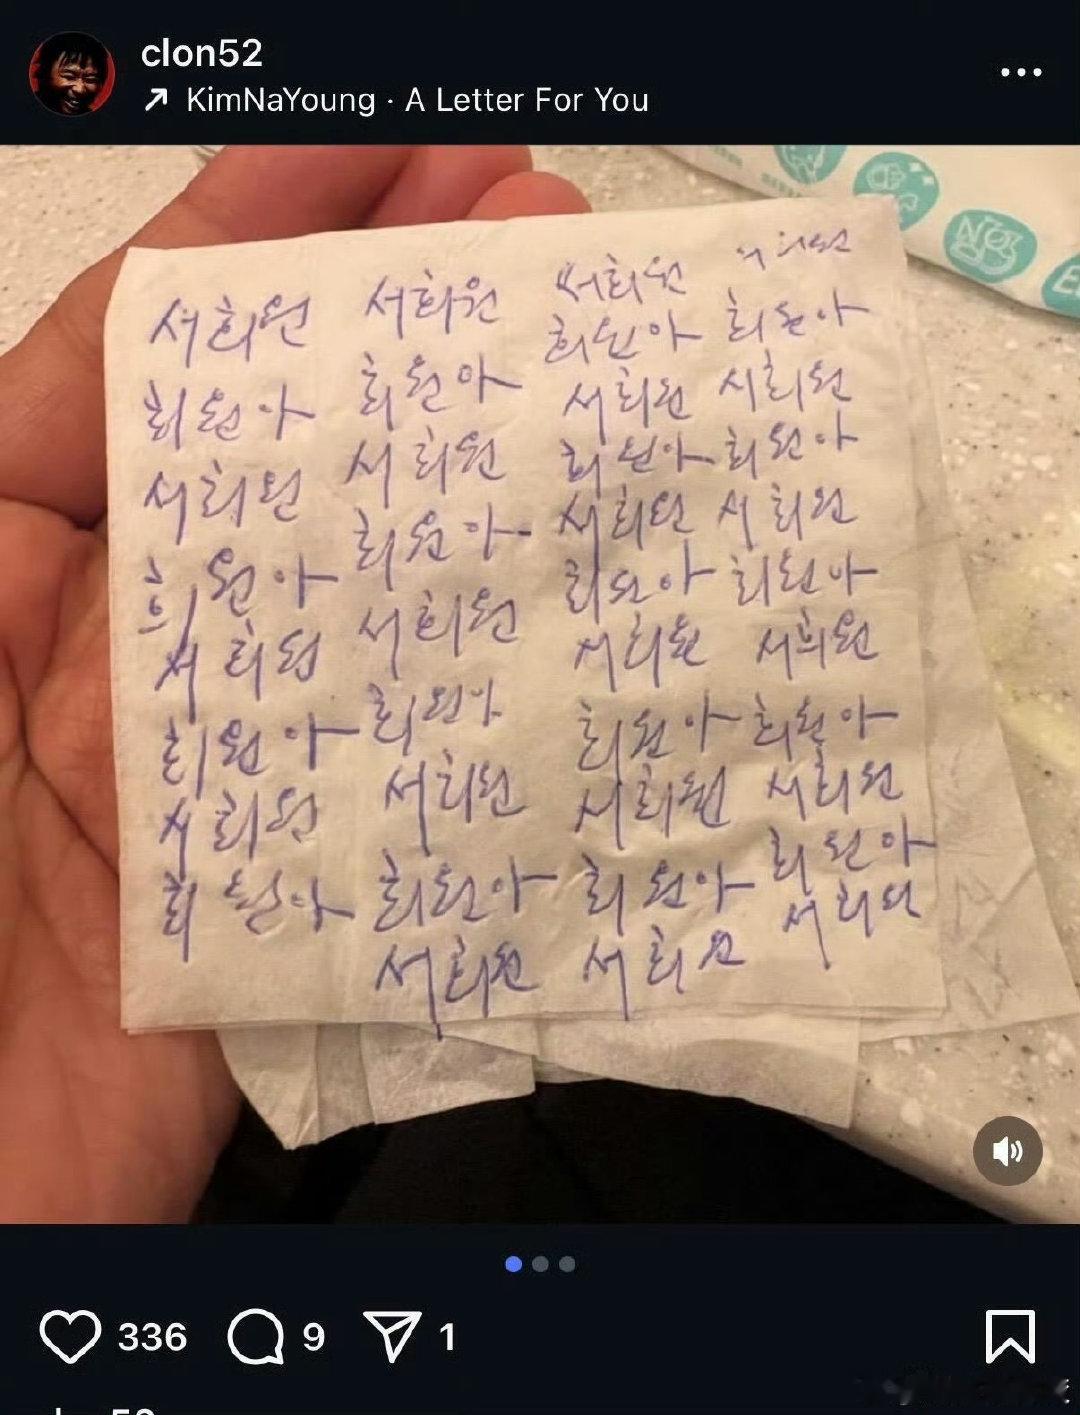 clon52
KimNaYoung · A Letter For You
서희원
희원아
서희원
희원아
서희원
희원아
서희원
희원아
서희원
희원아
서희원
희원아
서희원
희원아
서희원
희원아
서희원
서희원
희원아
서희원
희원아
서희원
희원아
서희원
희원아
서희원
희원아
서희원
서희원
희원아
서희원
희원아
서희원
희원아
서희원
희원아
서희원
희원아
서희원
NO
336 9 1